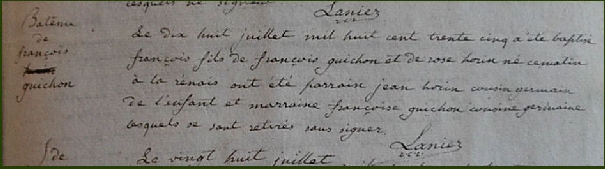 lesquels ne
Lanier
Batême
de
françois
guichon
Le dix huit juillet mil huit cent trente cinq a été baptisé
françois fils de françois guichon et de rose houn né ce matin
à la renais ont été parrain jean houn cousin germain
de l'enfant et marraine françoise guichon cousine germaine
lesquels se sont retirés sans signer.
Lanier
de
Le vingt huit juillet